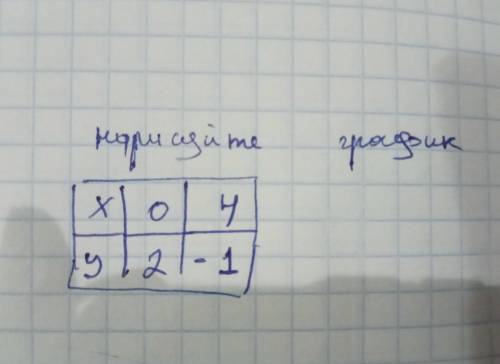 нарисуйте график
x 0 4
y 2 -1